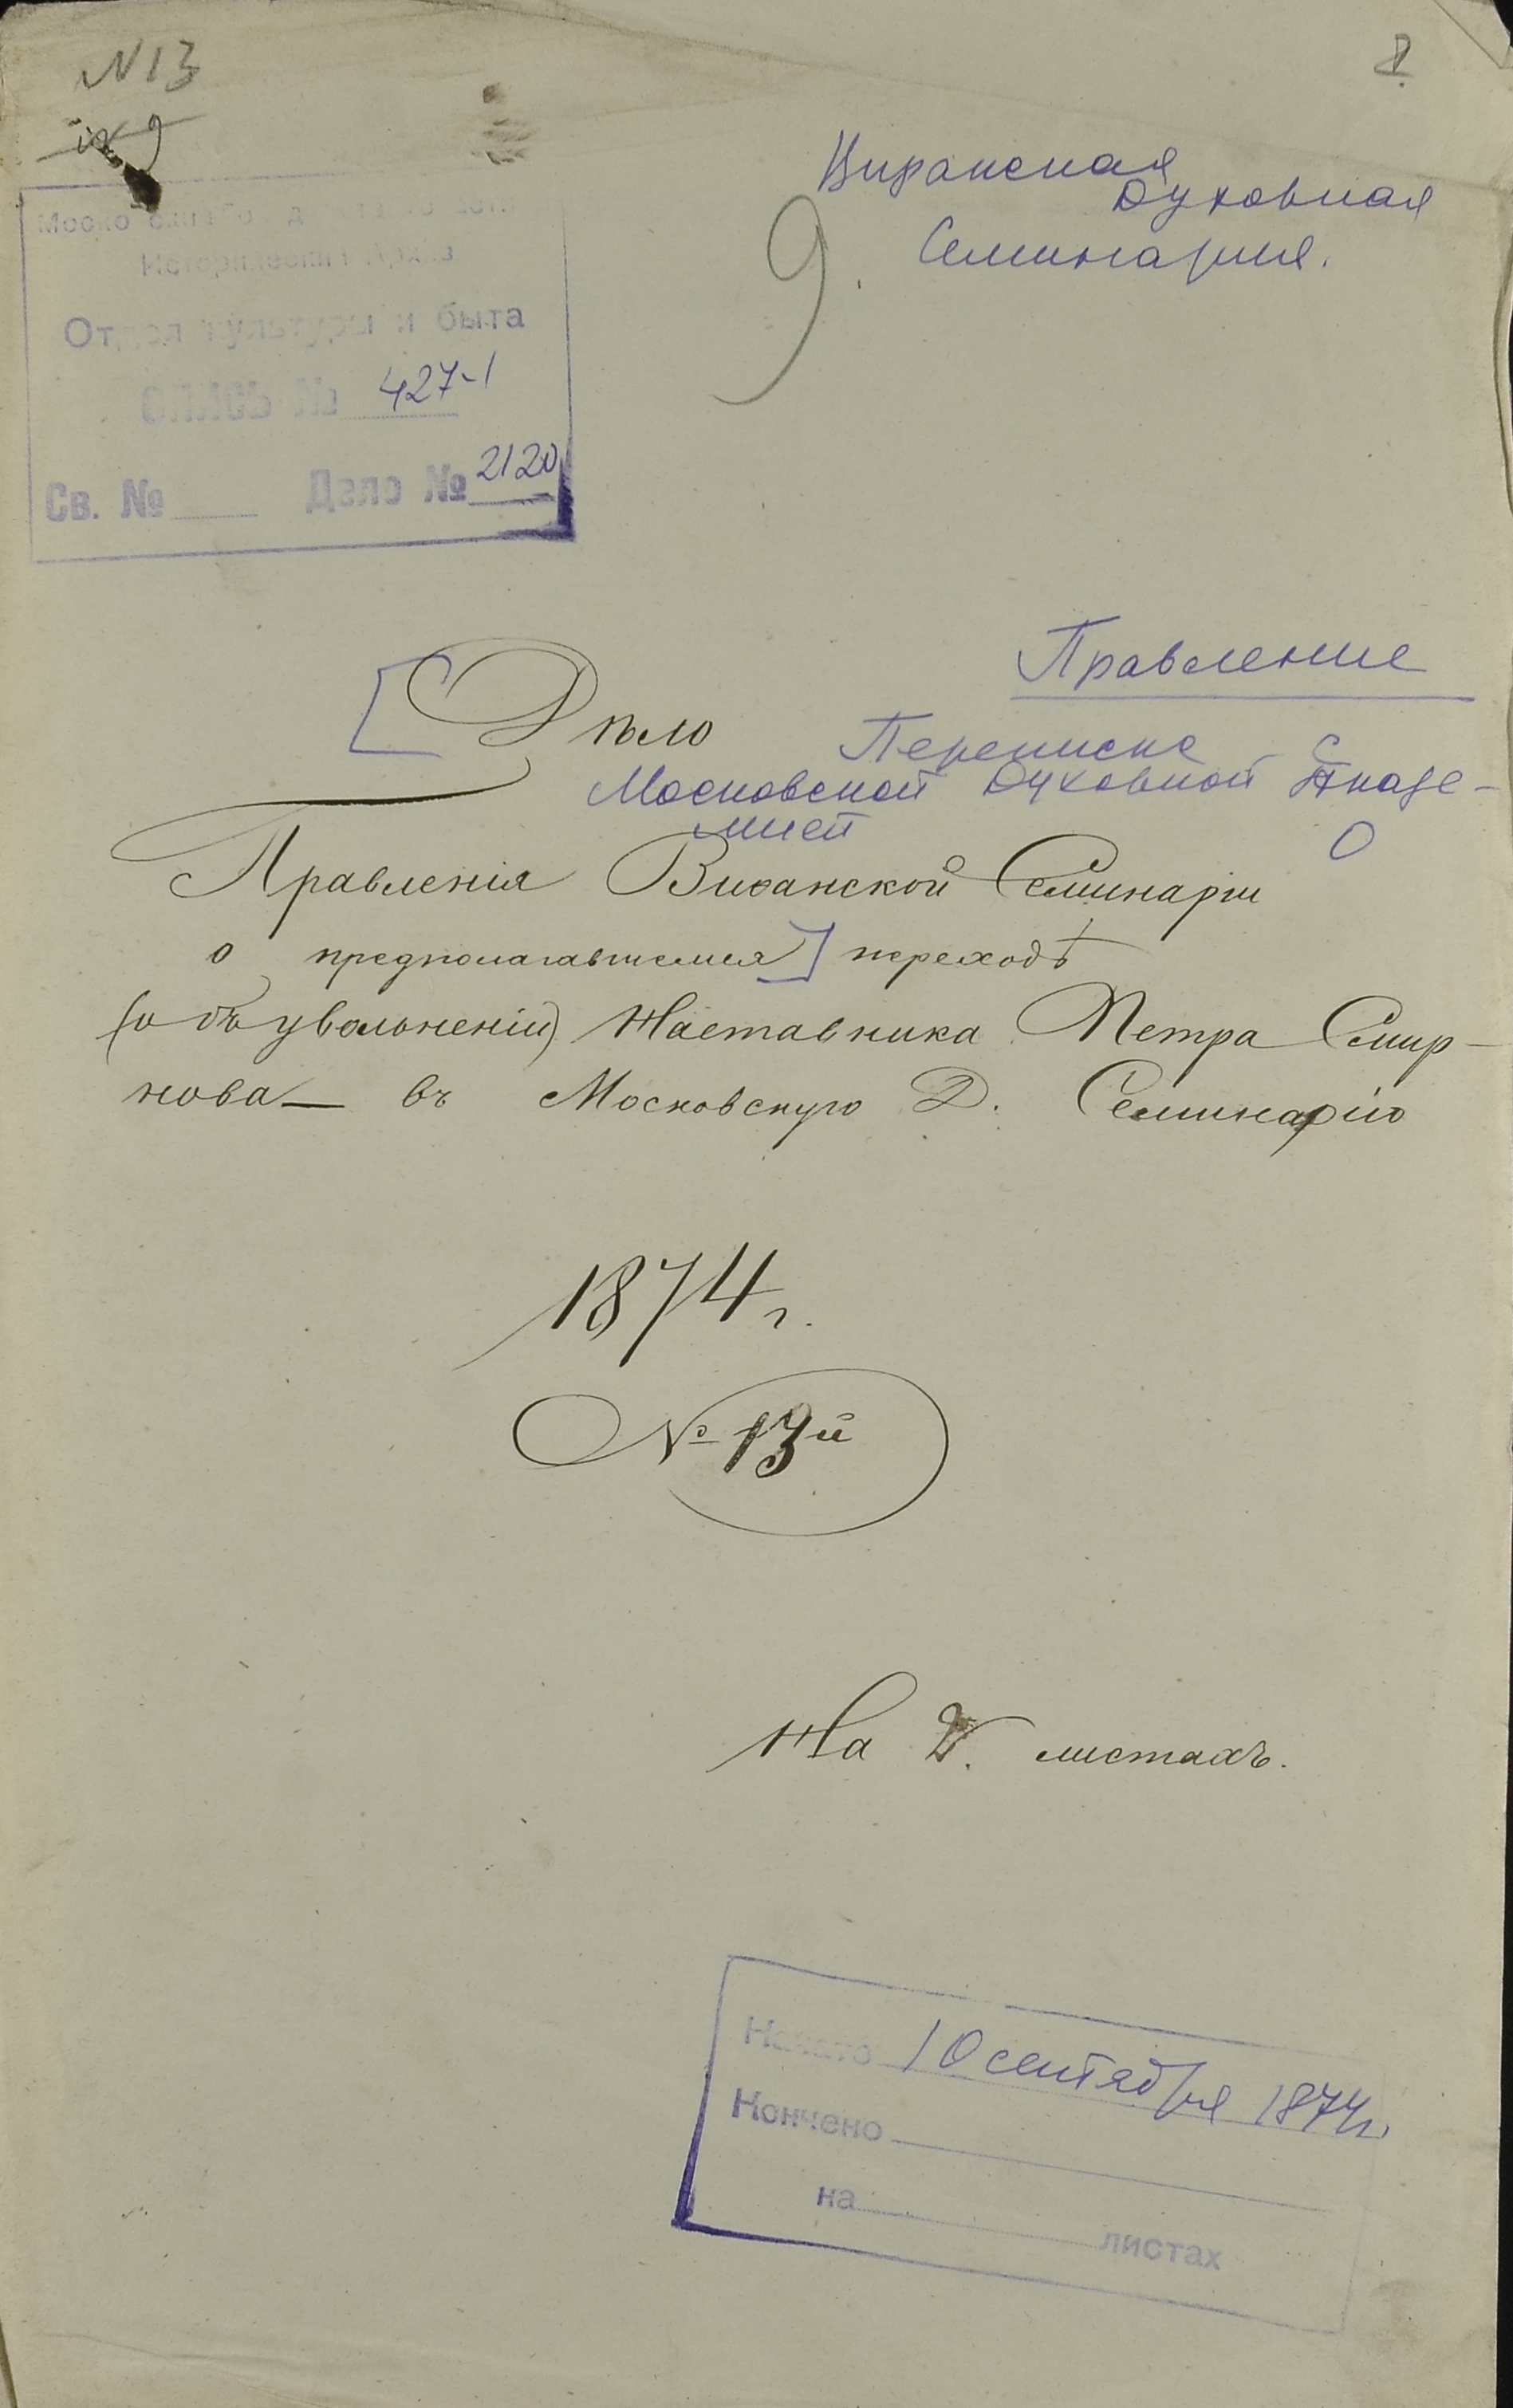 N 13
№ 9
Вифанская
Духовная
Семинария.
9.
Московский Го
Исторический Архив
Отдел культуры и быта
ОПИСЬ № 427-1
Св. № Дело № 2120
Правление
Дѣло
Переписка с
Московской Духовной Акаде-
мией о
Правленія Виѳанской Семинаріи
о предполагавшемся переходѣ
(и объ увольненіи) Наставника Петра Смир-
нова въ Московскую Д. Семинарію
1874 г.
№ 13й
На листахъ.
Начато 10 сентября 1874 г.
Кончено
на
листах